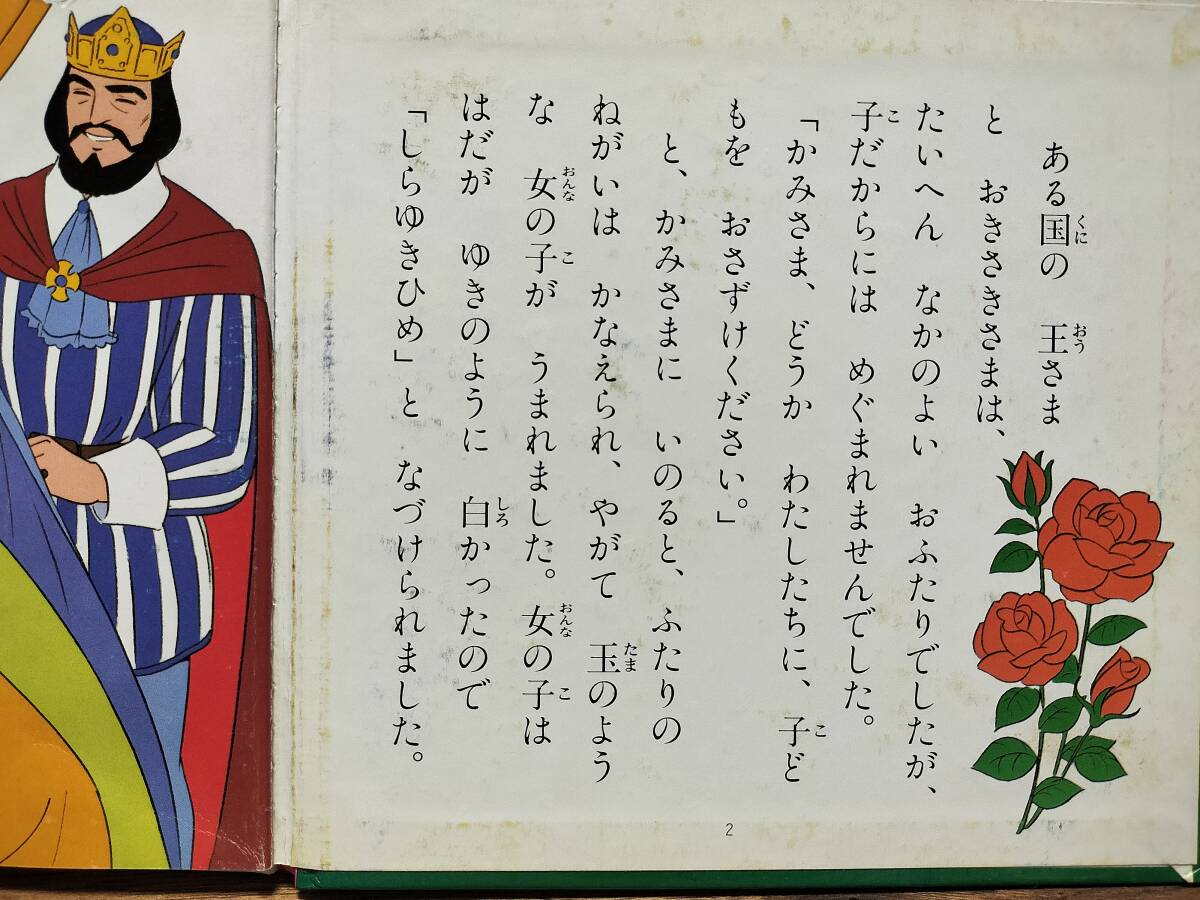 ある国の　王さま
と　おきさきさまは、
たいへん　なかのよい　おふたりでしたが、
子だからには　めぐまれませんでした。
「かみさま、どうか　わたしたちに、子ど
もを　おさずけください。」
と、かみさまに　いのると、ふたりの
ねがいは　かなえられ、やがて　玉のよう
な　女の子が　うまれました。女の子は
はだが　ゆきのように　白かったので
「しらゆきひめ」と　なづけられました。
2